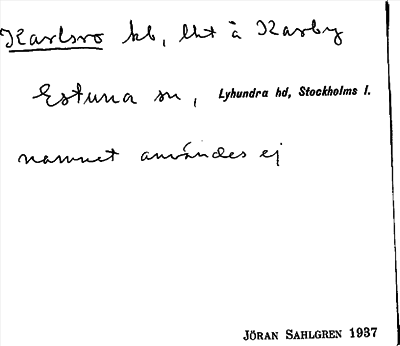 Karlsro kb, lht å Karby
Estuna sn, Lyhundra hd, Stockholms l.
namnet användes ej
JÖRAN SAHLGREN 1937